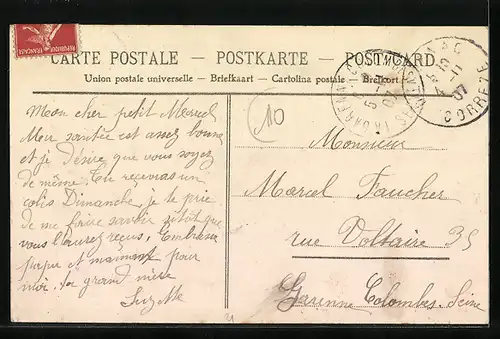 REPUBLIQUE FRANÇAISE
CARTE POSTALE – POSTKARTE – POSTCARD
Union postale universelle – Briefkaart – Cartolina postale – Brefkort
10
CORREZE
11
07
LA GARENNE-COLOMBES
SEINE
07
Mon cher petit Marcel
Mon santée est assez bonne
et je désire que vous soyez
de même. Tu recevras un
colis Dimanche, je te prie
de me faire savoir sitôt que
vous l'aurez reçus. Embrasse
papa et maman pour
moi. ta grand mère
Suzette
Monsieur
Marcel Faucher
rue Voltaire 35
Garenne Colombes. Seine